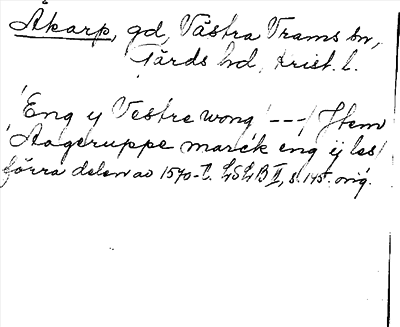 Åkarp, gd, Västra Trams sn,
Gärds hd, Krist. l.
'Eng y Vestre wong' ---/ Jtem
Aageruppe marck eng ij les/
förra delen av 1570-t. LSLB II, s. 145. orig.